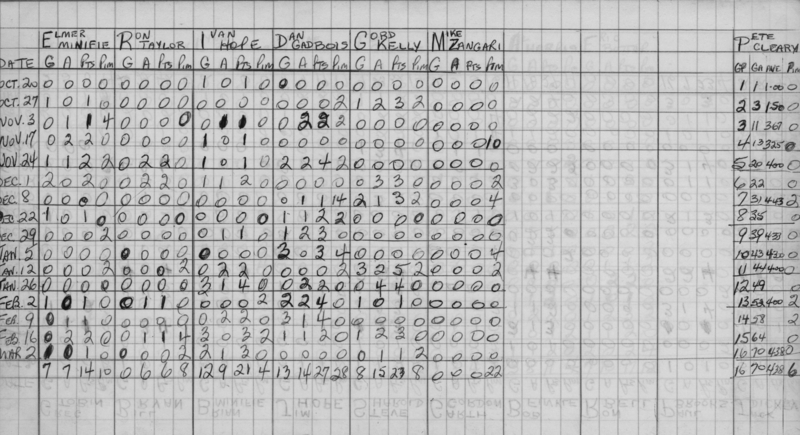 ELMER MINIFIE RON TAYLOR IVAN HOPE DAN GADBOIS GORD KELLY MIKE ZANGARI PETE CLEARY
DATE G A Pts Pim G A Pts Pim G A Pts Pim G A Pts Pim G A Pts Pim G A Pts Pim GP GA AVE Pim
OCT. 20 0 0 0 0 0 0 0 0 1 0 1 0 0 0 0 0 0 0 0 0 0 0 0 0 1 1 1.00 0
OCT. 27 1 0 1 0 0 0 0 0 0 0 0 0 0 0 0 2 1 2 3 2 0 0 0 0 2 3 150 0
NOV. 3 0 1 1 4 0 0 0 0 0 1 1 0 0 2 2 2 0 0 0 0 0 0 0 0 3 11 367 0
NOV. 17 0 2 2 0 0 0 0 0 1 0 1 0 0 0 0 0 0 0 0 0 0 0 0 10 4 13 325 0
NOV. 24 1 1 2 2 0 2 2 0 1 0 1 0 2 2 4 2 0 0 0 0 0 0 0 0 5 20 400 0
DEC. 1 2 0 2 0 0 2 2 0 1 1 2 0 0 0 0 0 0 3 3 0 0 0 0 2 6 22 0
DEC. 8 0 0 0 0 0 0 0 0 0 0 0 0 0 1 1 14 2 1 3 2 0 0 0 4 7 31 443 2
DEC. 22 1 0 1 0 0 0 0 0 0 0 0 0 1 1 2 2 0 0 0 0 0 0 0 0 8 35 0
DEC. 29 0 0 0 2 0 0 0 0 0 1 1 0 1 2 3 0 0 0 0 0 0 0 0 0 9 39 433 0
JAN. 5 0 0 0 2 0 0 0 0 0 0 0 0 3 0 3 4 0 0 0 0 0 0 0 4 10 43 430 0
JAN. 12 0 0 0 2 0 0 0 2 0 2 2 0 0 0 0 2 3 2 5 2 0 0 0 2 11 44 400 0
JAN. 26 0 0 0 0 0 0 0 0 3 1 4 0 0 2 2 0 0 4 4 0 0 0 0 0 12 49
FEB. 2 1 0 1 0 0 1 1 0 0 0 0 2 2 2 4 0 1 0 1 0 0 0 0 0 13 52 400 2
FEB. 9 0 1 1 0 0 0 0 0 0 2 2 0 3 1 4 0 0 0 0 0 0 0 0 0 14 58 2
FEB 16 0 2 2 0 0 1 1 4 3 0 3 2 1 1 2 0 1 2 3 0 0 0 0 0 15 64 0
MAR 2 1 0 1 0 0 0 0 2 2 1 3 0 0 0 0 0 0 1 1 2 0 0 0 0 16 70 438 0
7 7 14 10 0 6 6 8 12 9 21 4 13 14 27 28 8 15 23 8 0 0 0 22 16 70 438 6